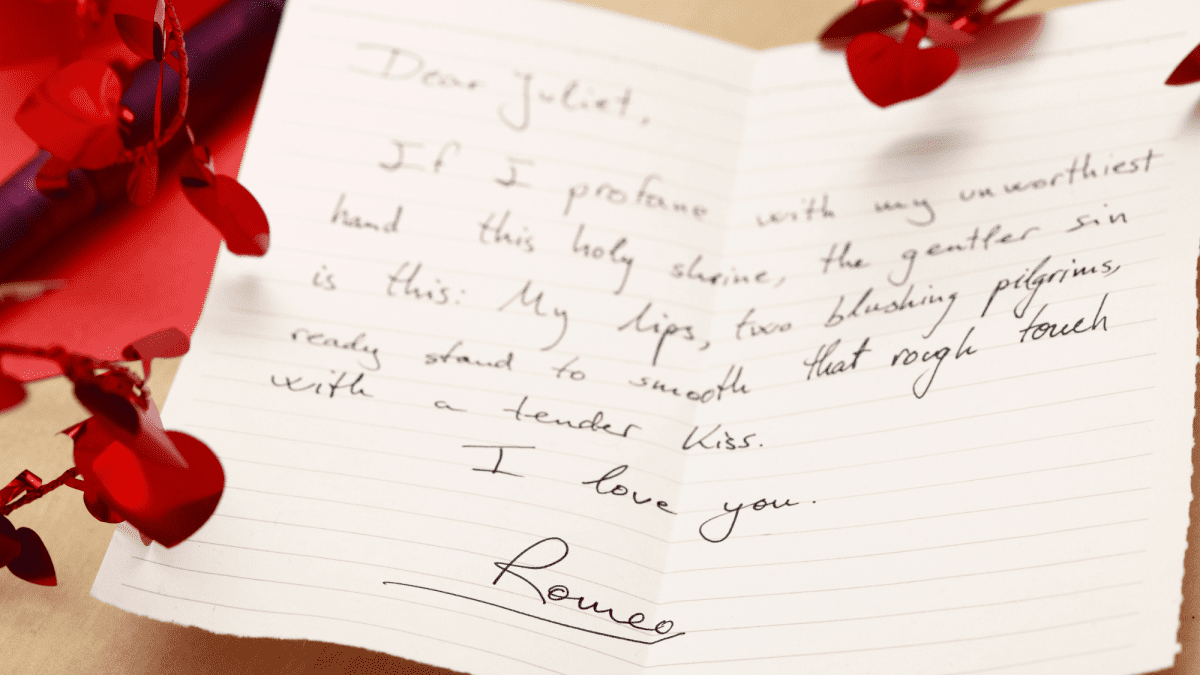 Dear Juliet,
If I profane with my unworthiest
hand this holy shrine, the gentler sin
is this: My lips, two blushing pilgrims,
ready stand to smooth that rough touch
with a tender kiss.
I love you.
Romeo